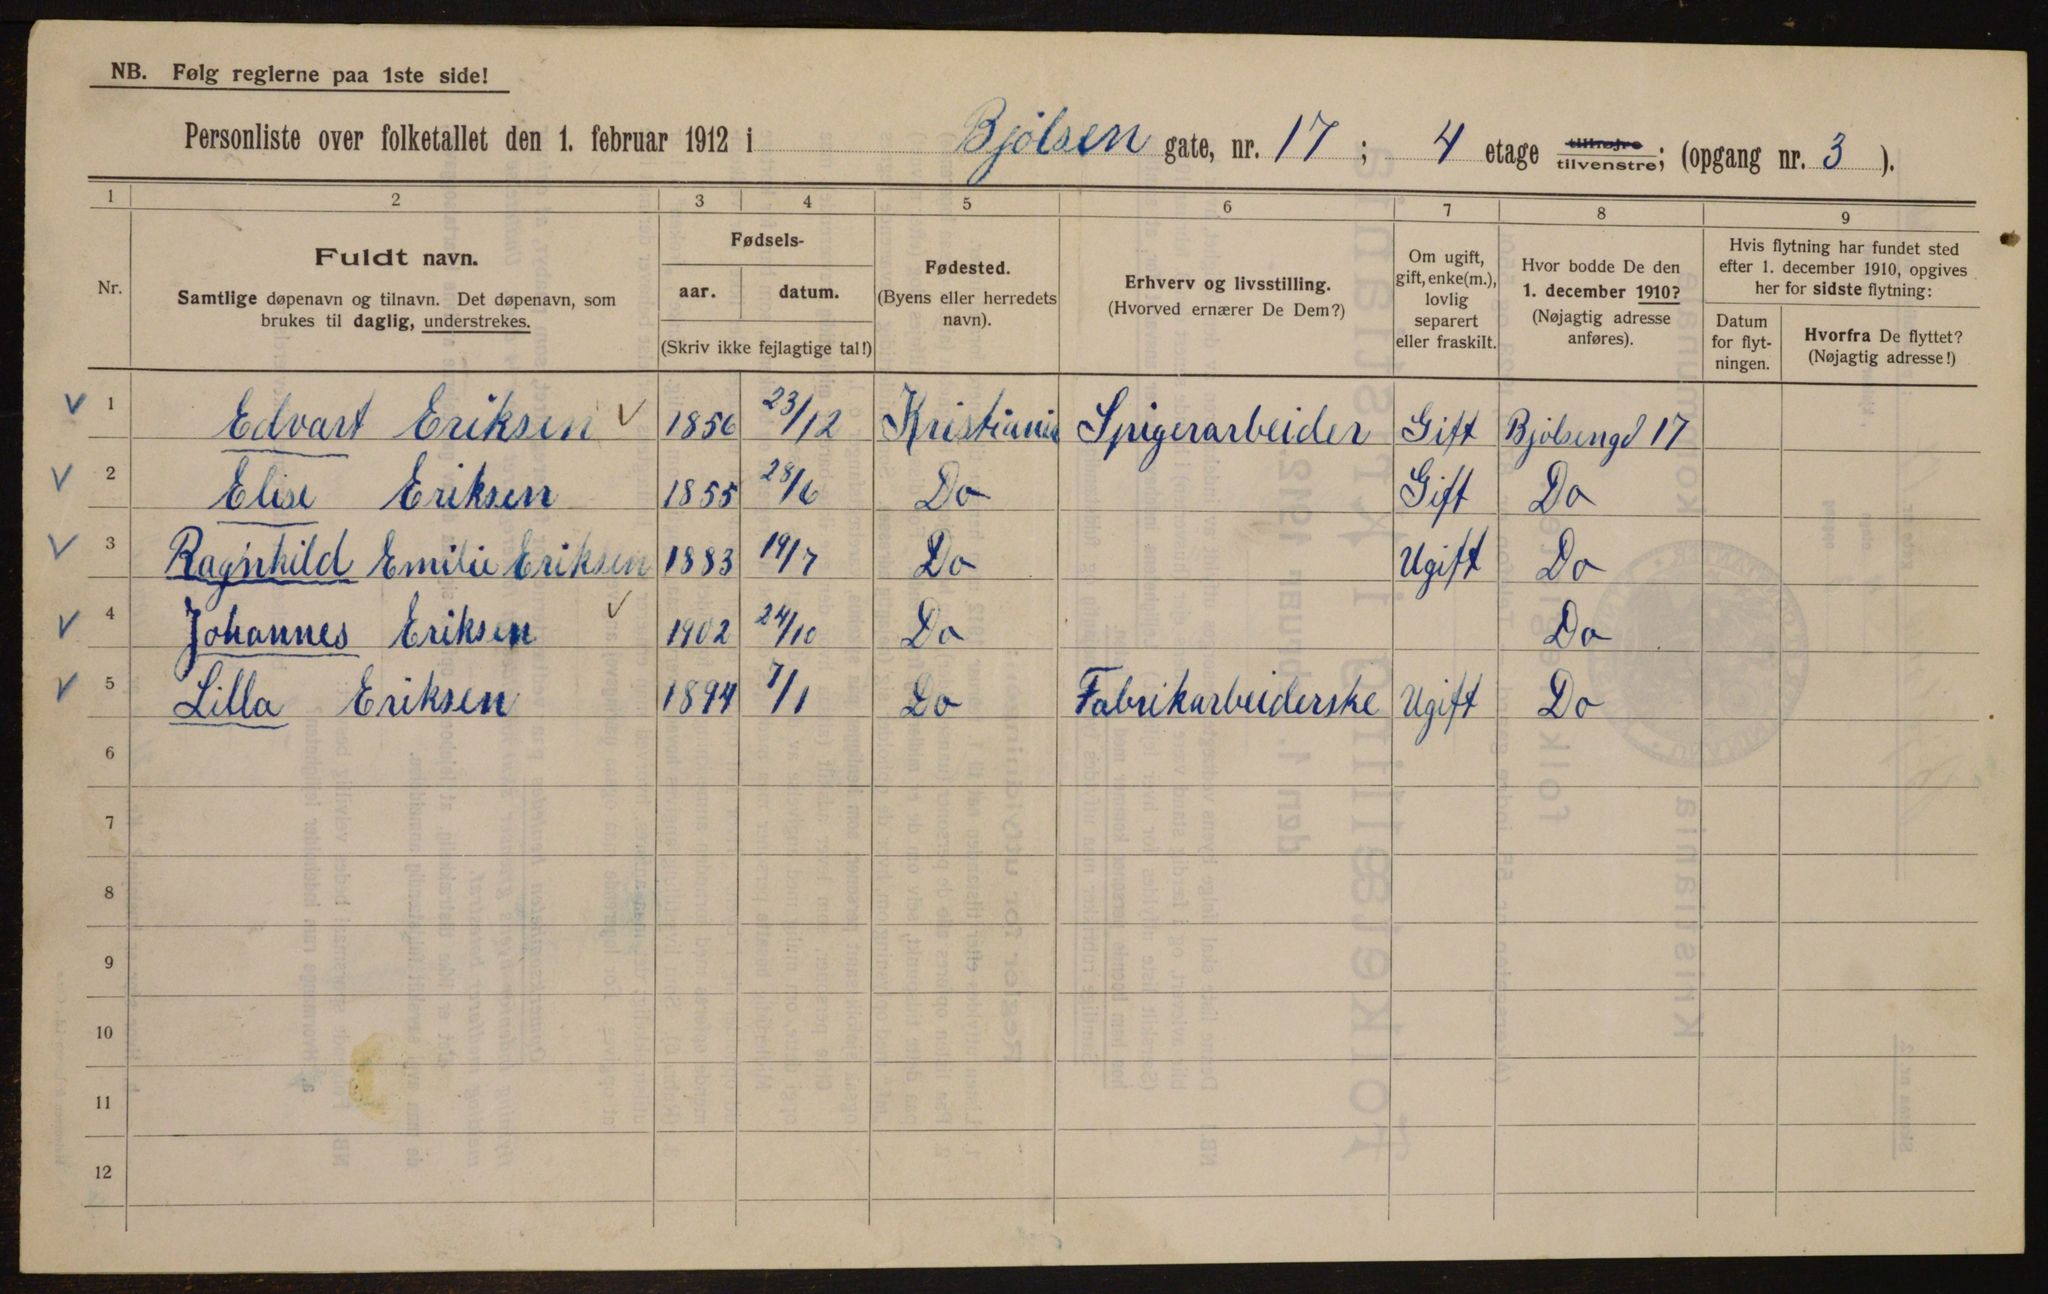 NB. Følg reglerne paa 1ste side!
Personliste over folketallet den 1. februar 1912 i Bjølsen gate, nr. 17; 4 etage tilhøjre tilvenstre; (opgang nr. 3).
1 2 3 4 5 6 7 8 9
Nr.
Fuldt navn.
Samtlige døpenavn og tilnavn. Det døpenavn, som
brukes til daglig, understrekes.
Fødsels-
aar. datum.
(Skriv ikke fejlagtige tal!)
Fødested.
(Byens eller herredets
navn).
Erhverv og livsstilling.
(Hvorved ernærer De Dem?)
Om ugift,
gift, enke(m.),
lovlig
separert
eller fraskilt.
Hvor bodde De den
1. december 1910?
(Nøjagtig adresse
anføres).
Hvis flytning har fundet sted
efter 1. december 1910, opgives
her for sidste flytning:
Datum
for flyt-
ningen.
Hvorfra De flyttet?
(Nøjagtig adresse!)
1 Edvart Eriksen 1856 23/12 Kristiania Spigerarbeider Gift Bjølsengd 17
2 Elise Eriksen 1855 28/6 Do Gift Do
3 Ragnhild Emilie Eriksen 1883 19/7 Do Ugift Do
4 Johannes Eriksen 1902 24/10 Do Do
5 Lilla Eriksen 1894 7/1 Do Fabrikarbeiderske Ugift Do
6
7
8
9
10
11
12